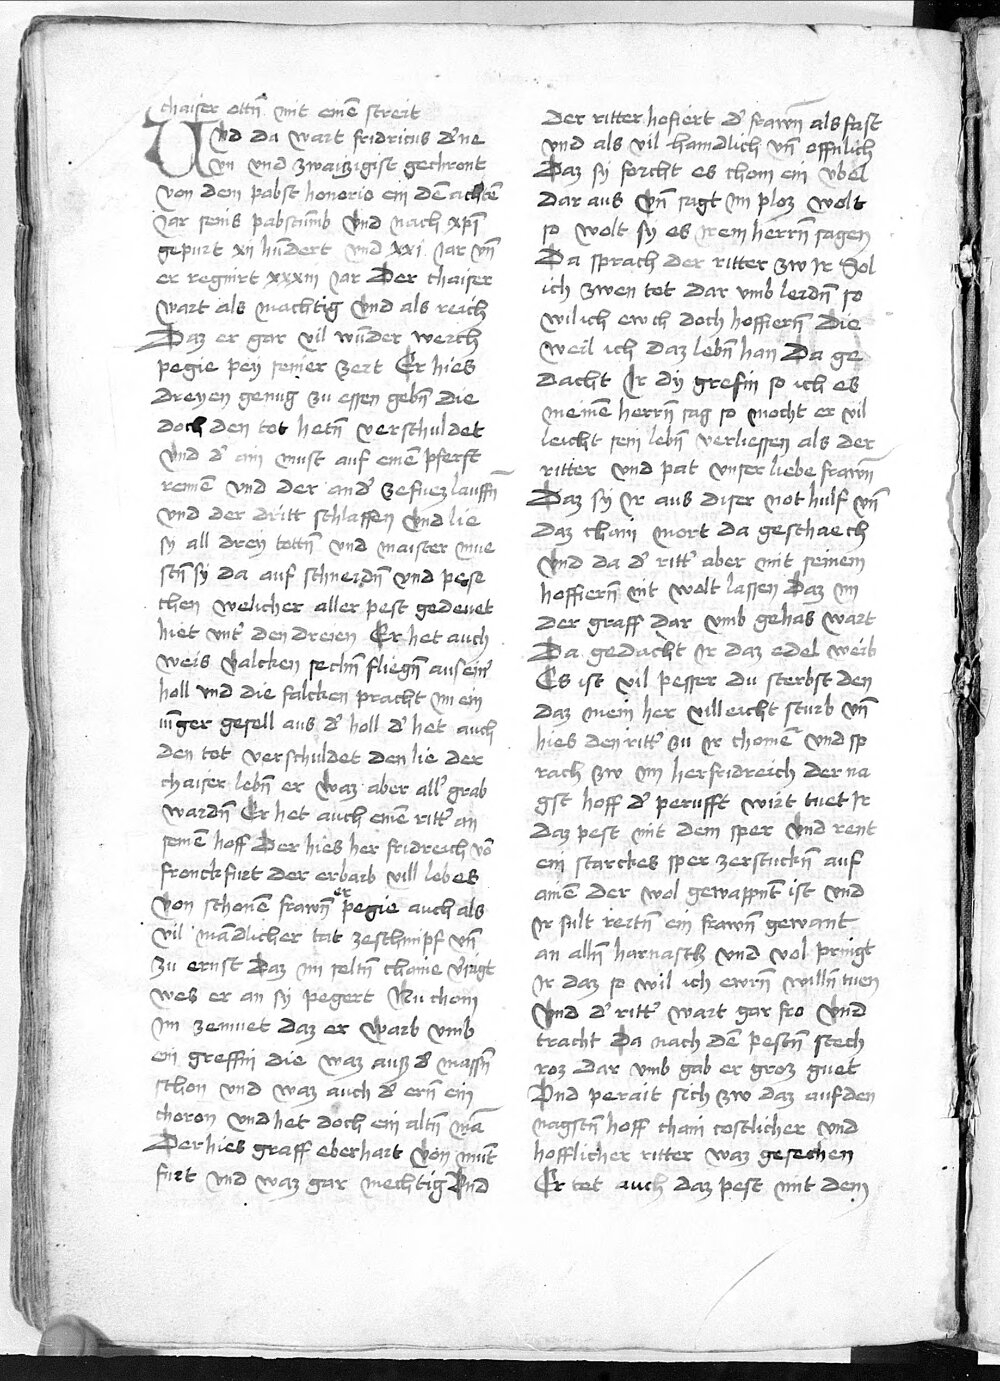 chaiser ottñ mit einē streit
Und da wart fridricus d' ne
vn und zwaitzigist gechront
von dem pabst honorio ein dē achtē
Jar seins pabstumb und nach xp̄i
gepurt xii hūdert und xxi Jar vñ
er regnirt xxxiii Jar Der chaiser
wart als machtig und als reich
Daz er gar vil wūder werch
pegie pey seiner zeit Er hies
dreyen genug zu essen gebñ die
doch den tot hetñ verschuldet
und d' ain must auf einē pferft
reitē und der and' ze fuez lauffñ
und der dritt schlaffen und lie
sy all drey tottñ und maister mue
stñ sy da auf schneidñ und pese
chen welicher aller pest gedeuet
hiet unt' den dreien Er het auch
weis valcken sechñ fliegñ aus ein'
holl und die falcken pracht im ein
iūger gesell aus d' holl d' het auch
den tot verschuldet den lie der
chaiser lebñ er waz aber all' grab
wardñ Er het auch einē ritt' an
seinē hoff Der hies her fridreich vō
fronckfurt der erbarb vill lobes
von schonē frawñ er pegie auch als
vil mādlicher tat ze schimpf vñ
zu ernst Daz im seltñ chaine v'sagt
wes er an sy pegert Nu chom
im ze muet daz er warb umb
ein greffin die waz ausz d' massñ
schon und waz auch d' ern ein
choron und het doch ein altñ mā
Der hies graff eberhart von munt
furt und waz gar mechtig Und
der ritter hofiert d' frawn als fast
und als vil haimdlich vñ offnlich
Daz sy forcht es chom ein vbel
dar aus vñ sagt im ploz wolt
so wolt sy es irem herrñ sagen
Da sprach der ritter zw ir Sol
ich zwen tot dar umb leidñ so
wil ich ewch doch hoffierñ die
weil ich daz lebñ han Da ge
dacht ir dy grefin so ich es
meinē herrñ sag so mocht er vil
leicht sein lebñ verliessen als der
ritter und pat unser liebe frawñ
Daz sy ir aus diser not hulf vñ
daz chain mort da geschaech
und da d' ritt' aber mit seinem
hoffierñ nit wolt lassen Daz im
der graff dar umb gehas wart
Da gedacht ir daz edel weib
Es ist vil pesser du sterbst den
daz mein her villeicht sturb vñ
hies den ritt' zu ir chomē und sp
rach zw im her fridreich der na
gst hoff d' perufft wirt tuet ir
daz pest mit dem sper und rent
ein starckes sper zerstuckñ auf
ainē der wol gewappnt ist und
ir sult reitñ ein frawñ gewant
an allñ harnasch und vol pringt
ir daz so wil ich ewrñ willñ tuen
und d' ritt' wart gar fro und
tracht Da nach dē pestñ stech
roz dar umb gab er groz guet
Und perait sich zw daz auf den
nagstñ hoff chain costlicher und
hofflicher ritter waz gesechen
Er tet auch daz pest mit dem